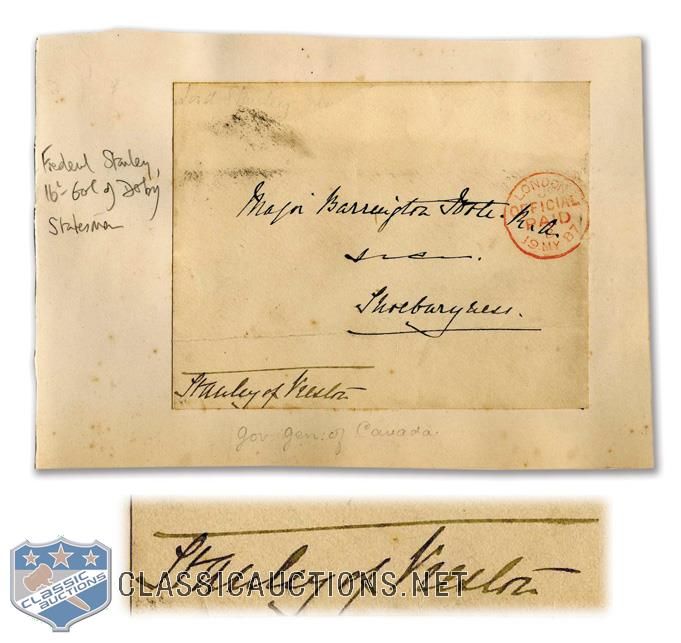 Lord Stanley
Frederick Stanley,
16th Earl of Derby
Statesman
Major Barrington Foote. R.A.
Shoeburyness.
LONDON
OFFICIAL
PAID
19 MY 87
Stanley of Preston
Gov. Gen: of Canada
Stanley of Preston
CLASSIC
AUCTIONS
CLASSICAUCTIONS.NET